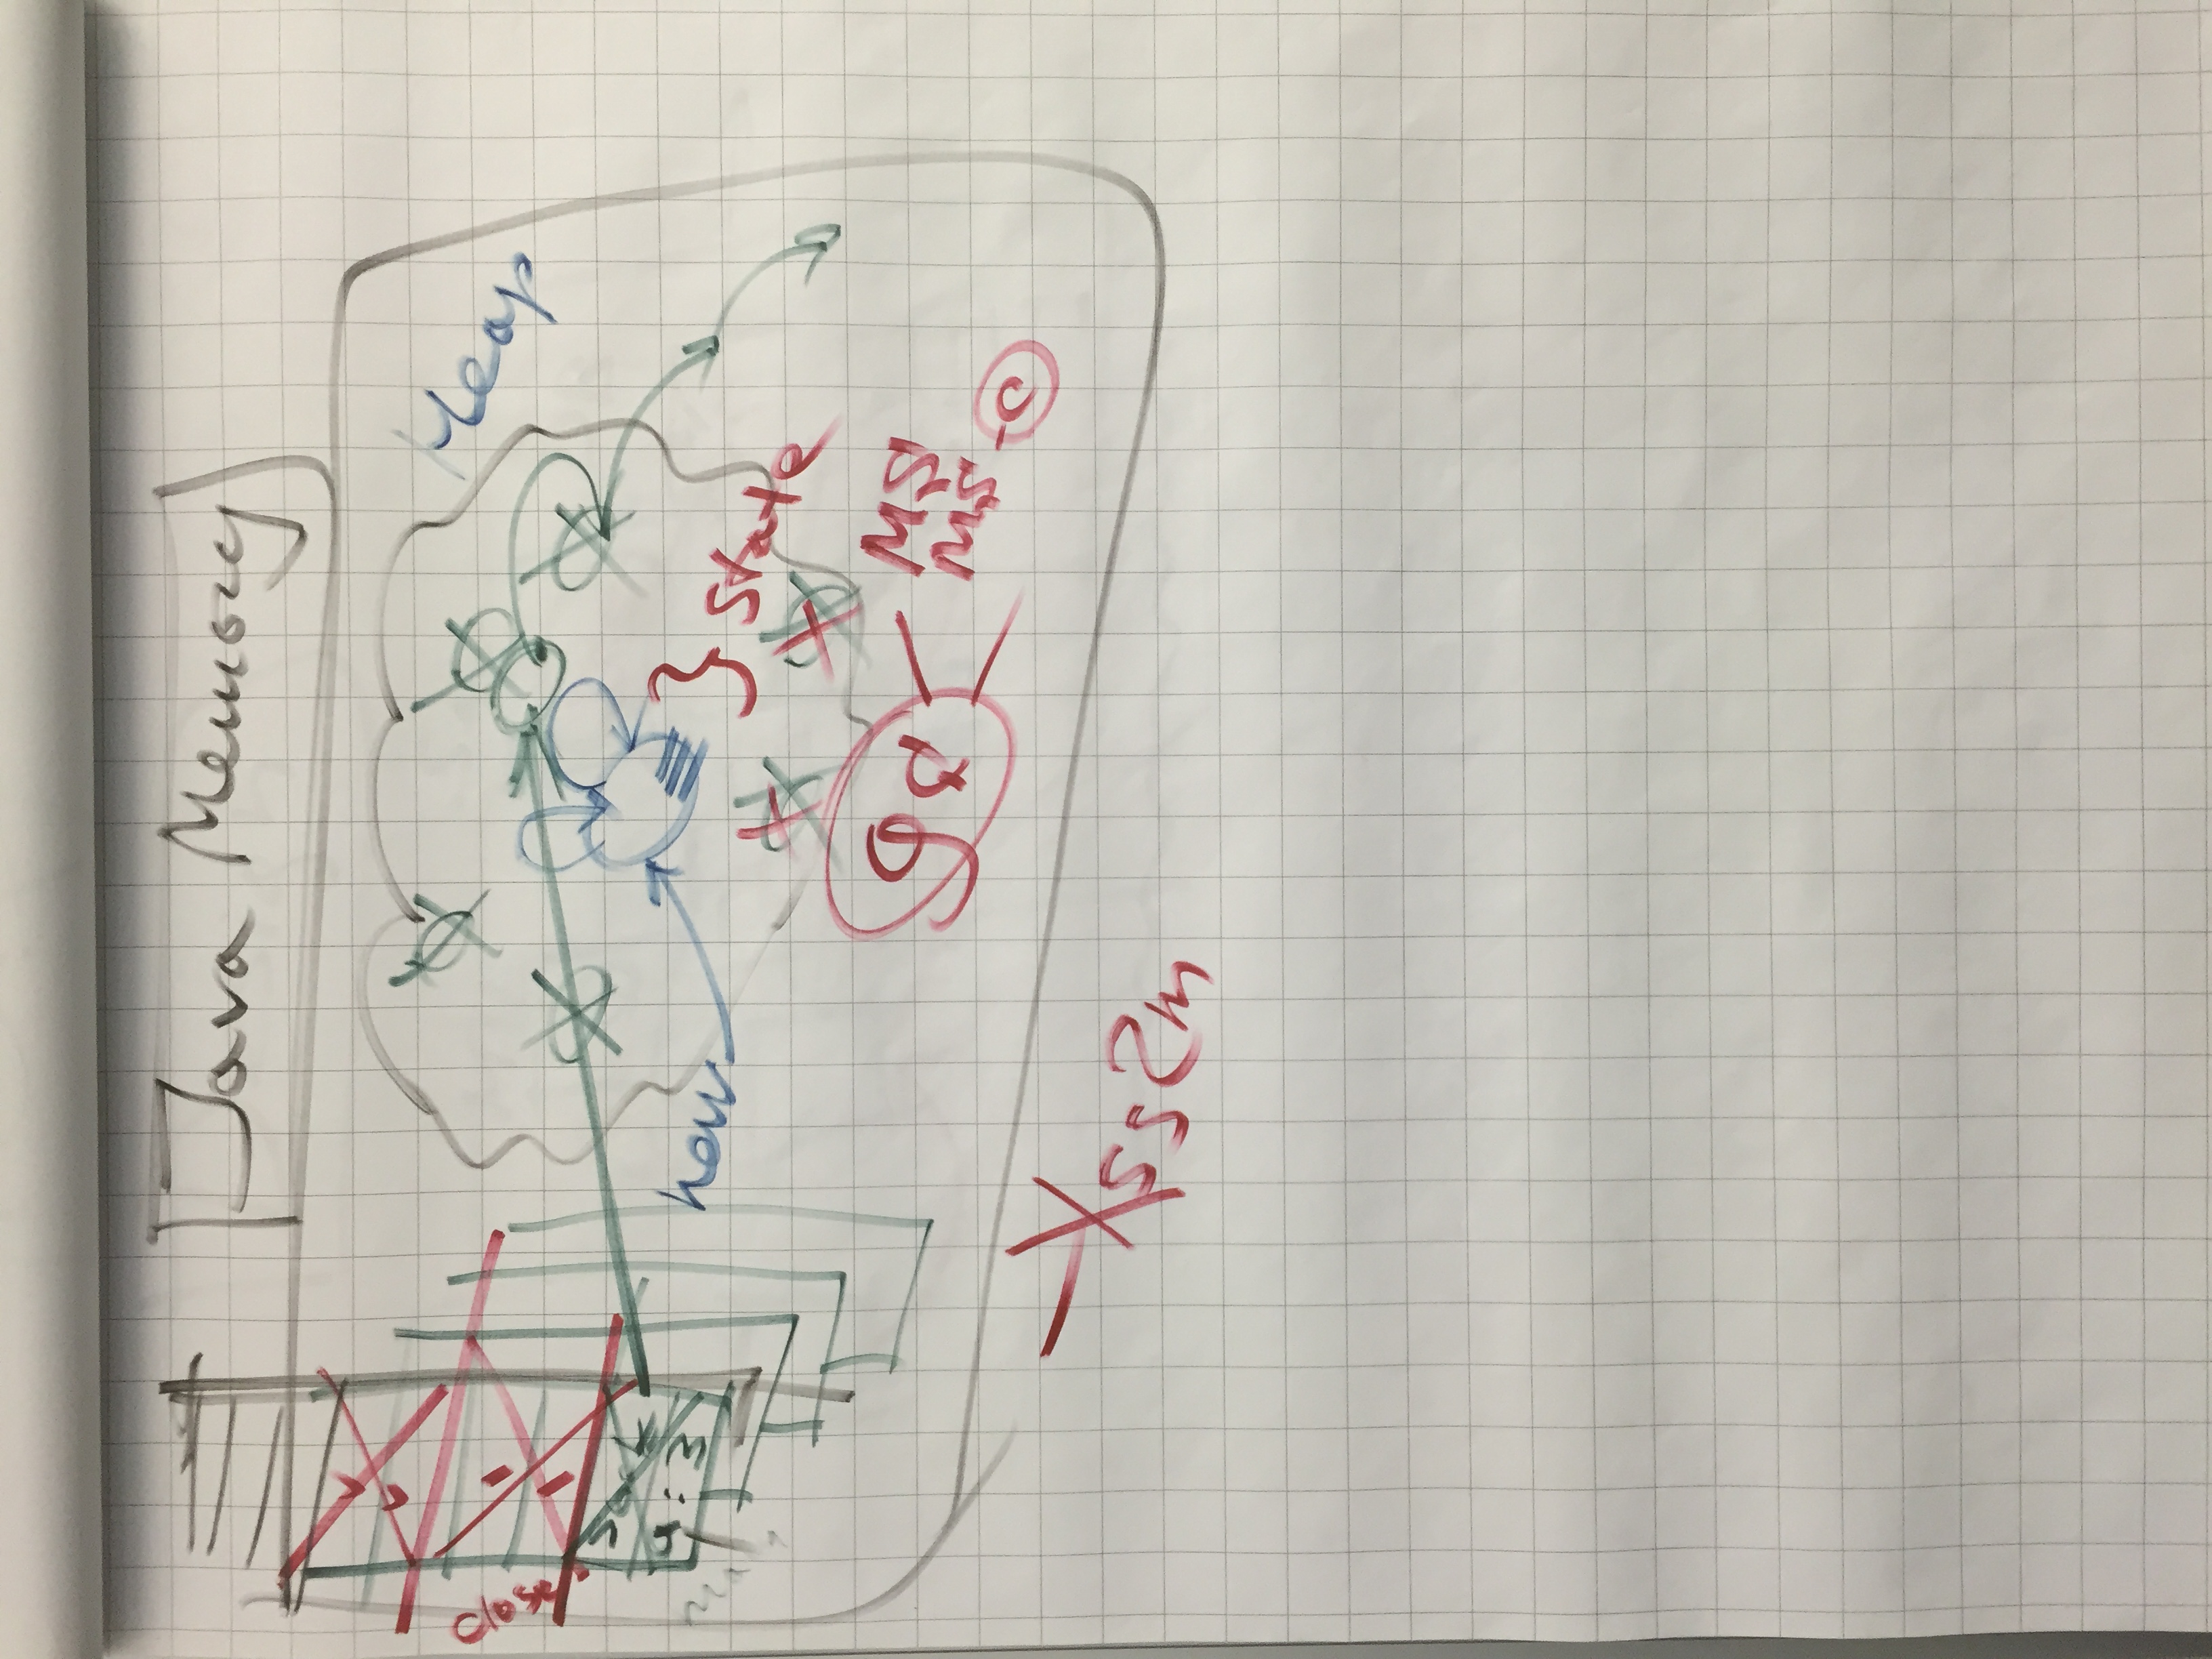 Java Memory
Heap
new
State
gc
MS
MS-C
-Xss2m